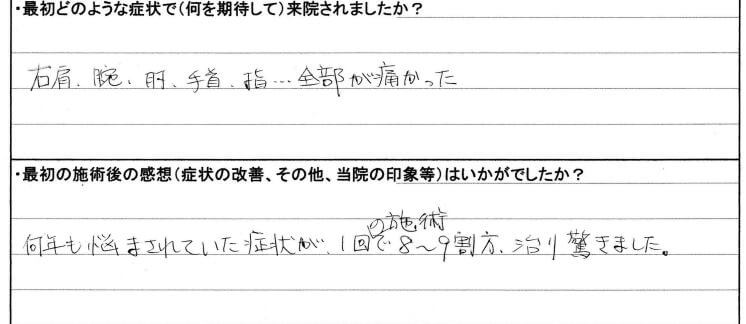 ・最初どのような症状で(何を期待して)来院されましたか？
右肩、腕、肘、手首、指…全部が痛かった
・最初の施術後の感想(症状の改善、その他、当院の印象等)はいかがでしたか？
何年も悩まされていた症状が、1回の施術で8～9割方、治り驚きました。